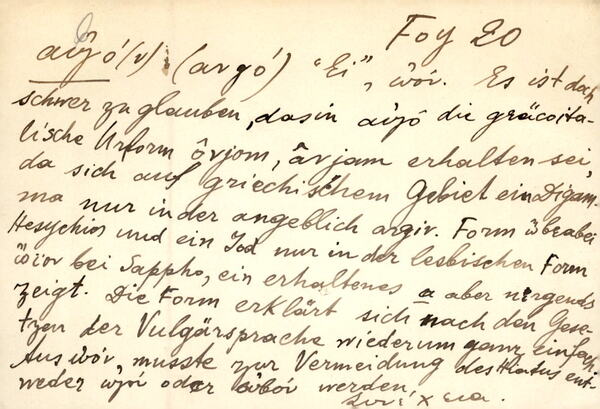 Foy 20
αὐγό(ν) (avgó) "Ei", ὠόν. Es ist doch
schwer zu glauben, das in αὐγό die gräcoita-
lische Urform âvjom, âvjam erhalten sei,
da sich auf griechischem Gebiet ein Digam-
ma nur in der angeblich argiv. Form ὤβεα bei
Hesychios und ein Jod nur in der lesbischen Form
ὤϊον bei Sappho, ein erhaltenes a aber nirgends
zeigt. Die Form erklärt sich nach den Gese-
tzen der Vulgärsprache wiederum ganz einfach
Aus ὠόν, musste zur Vermeidung des Hiatus ent-
weder ὠγόν oder ὠβόν werden